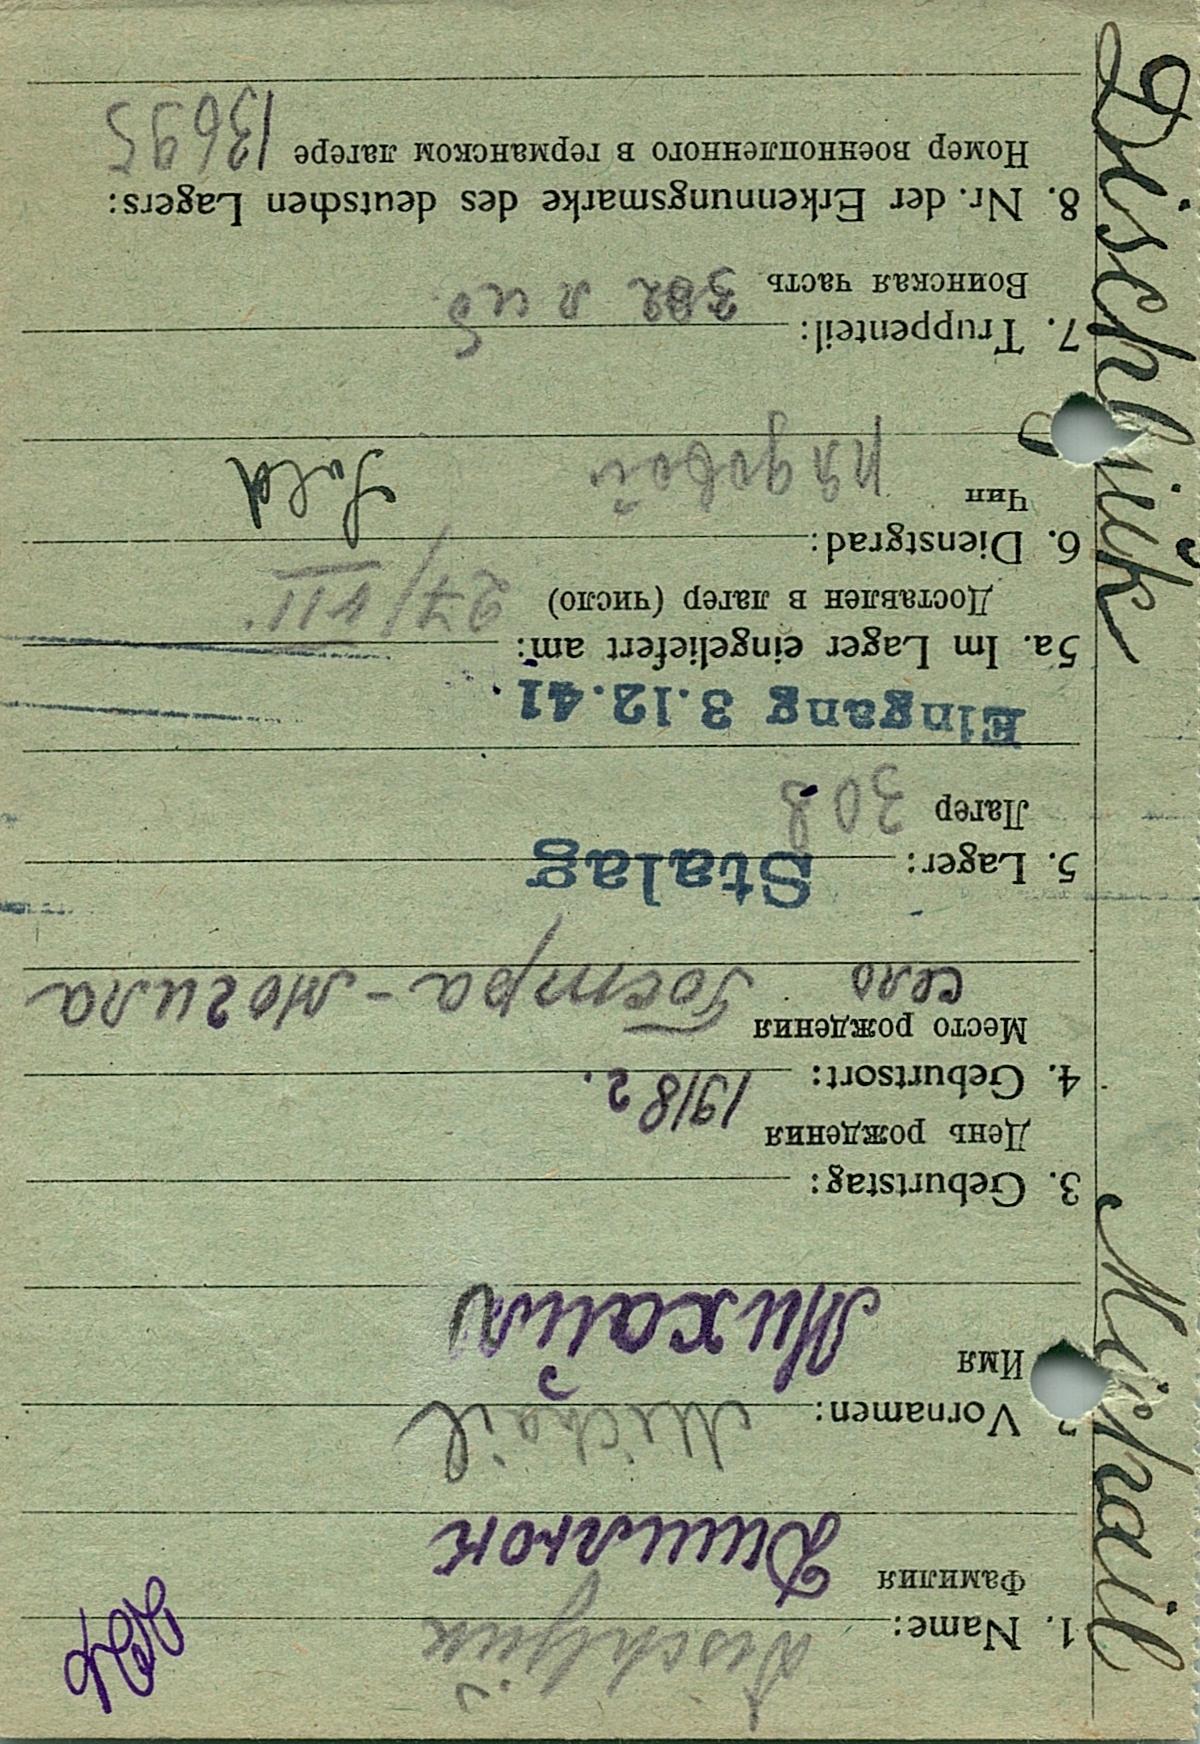 Dischljuk Michail
1. Name: Dischljuk
Фамилия Дишлюк
2. Vornamen: Michail
Имя Михаил
3. Geburtstag:
День рождения 1918 г.
4. Geburtsort:
Место рождения
село Гостра-могила
5. Lager: Stalag
Лагер 308
Eingang 3.12.41.
5a. Im Lager eingeliefert am:
Доставлен в лагер (число) 27/VII.
6. Dienstgrad:
Чин рядовой Sold
7. Truppenteil:
Воинская часть
8. Nr. der Erkennungsmarke des deutschen Lagers:
Номер военнопленного в германском лагере 13695